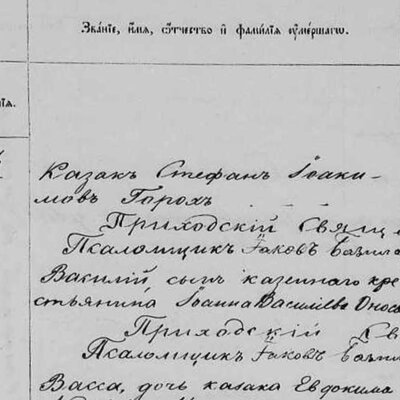 Зва́нїе, и҆́мѧ, ѻ҆́тчество и҆ фамѝлїѧ ᲂу҆ме́ршагѡ.
їѧ.
Казакъ Стефанъ Іоаки-
мовъ Горохъ
Приходскій Свяще
Псаломщикъ Іаковъ
Василій, сынъ казеннаго кре
стьянина Іоанна Василіева
Приходскій Св
Псаломщикъ Іаковъ
Васса, дочь казака Евдокима